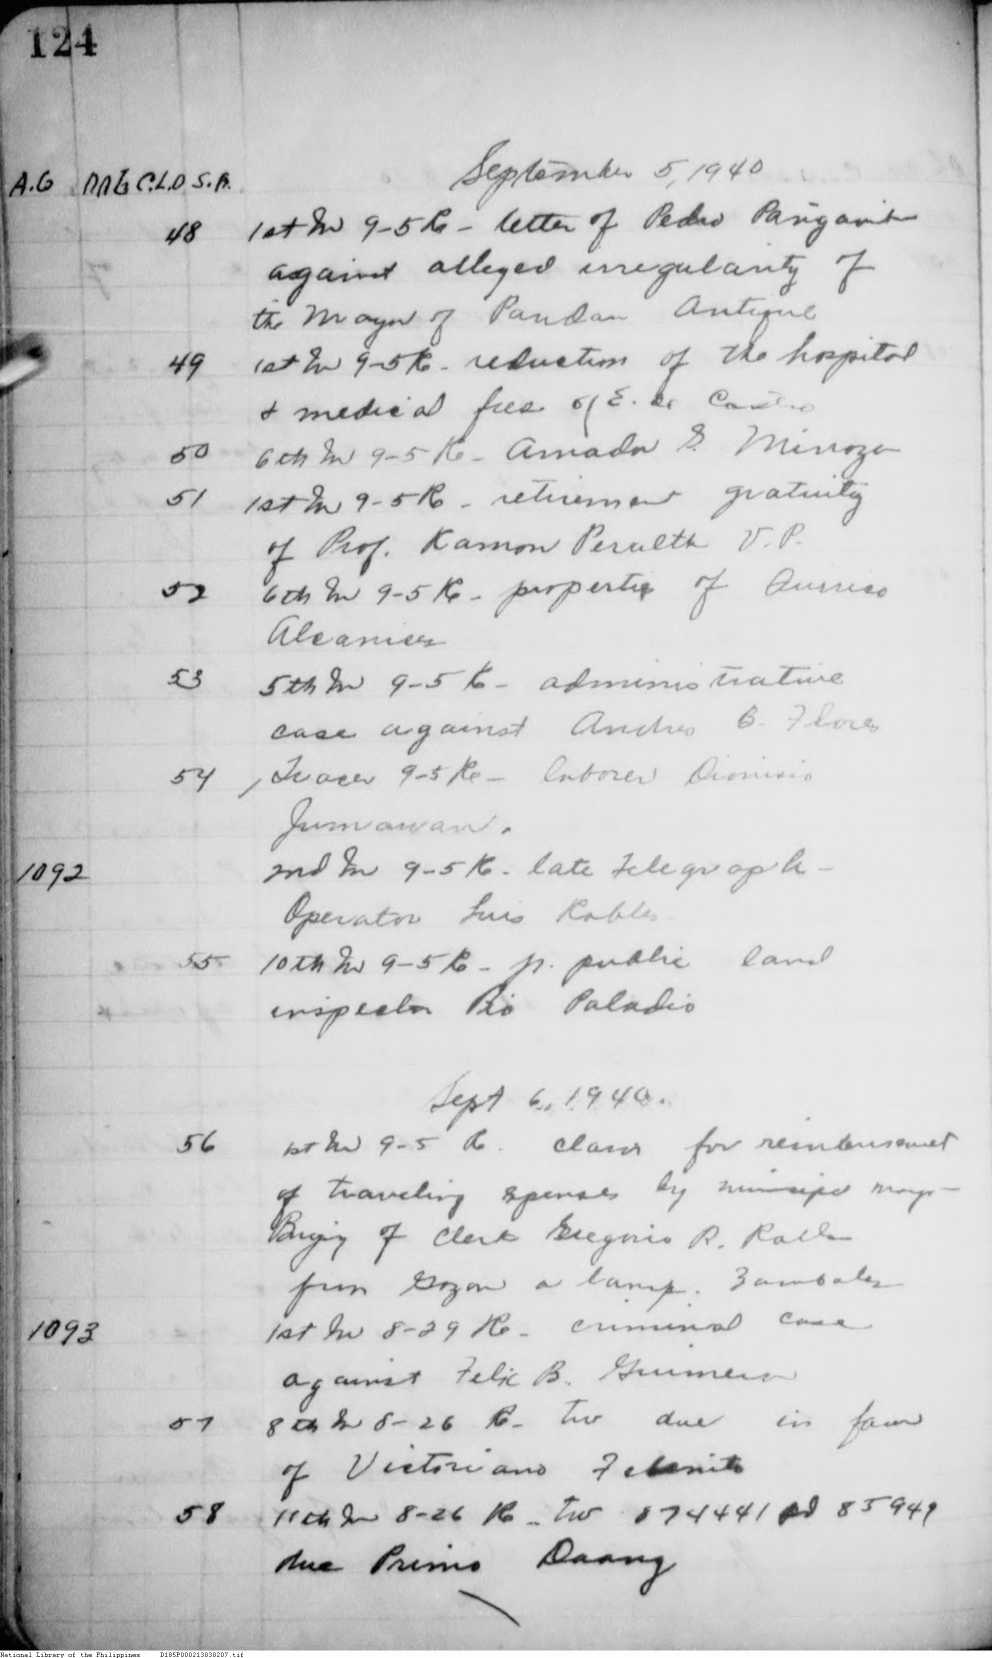 124
September 5, 1940
A.G C.L.O S.A.
48 1st In 9-5 R - letter of Pedro
against alleged irregularity of
the Mayor of Pandan Antique
49 1st In 9-5 R - reduction of the hospital
& medical fees of E. de Castro
50 6th In 9-5 R - Amador S.
51 1st In 9-5 R - retirement gratuity
of Prof. Ramon Peralta V.P.
52 6th In 9-5 R - properties of
53 5th In 9-5 R - administrative
case against Andres B. Flores
54 Tracer 9-5 R - laborer Dionisio
Jumawan.
1092 2nd In 9-5 R - late Telegraph-
Operator Luis Robles
55 10th In 9-5 R - jr. public land
inspector Pio Paladio
Sept 6, 1940.
56 1st In 9-5 R. claim for reimbursement
of traveling expenses by
of Clerk Gregorio R.
from a Zambales
1093 1st In 8-29 R - criminal case
against Felix B.
57 8th In 8-26 R - tw due in favor
of Victoriano
58 11th In 8-26 R - tw 874441
due Primo Daang
National Library of the Philippines D185P000213838207.tif